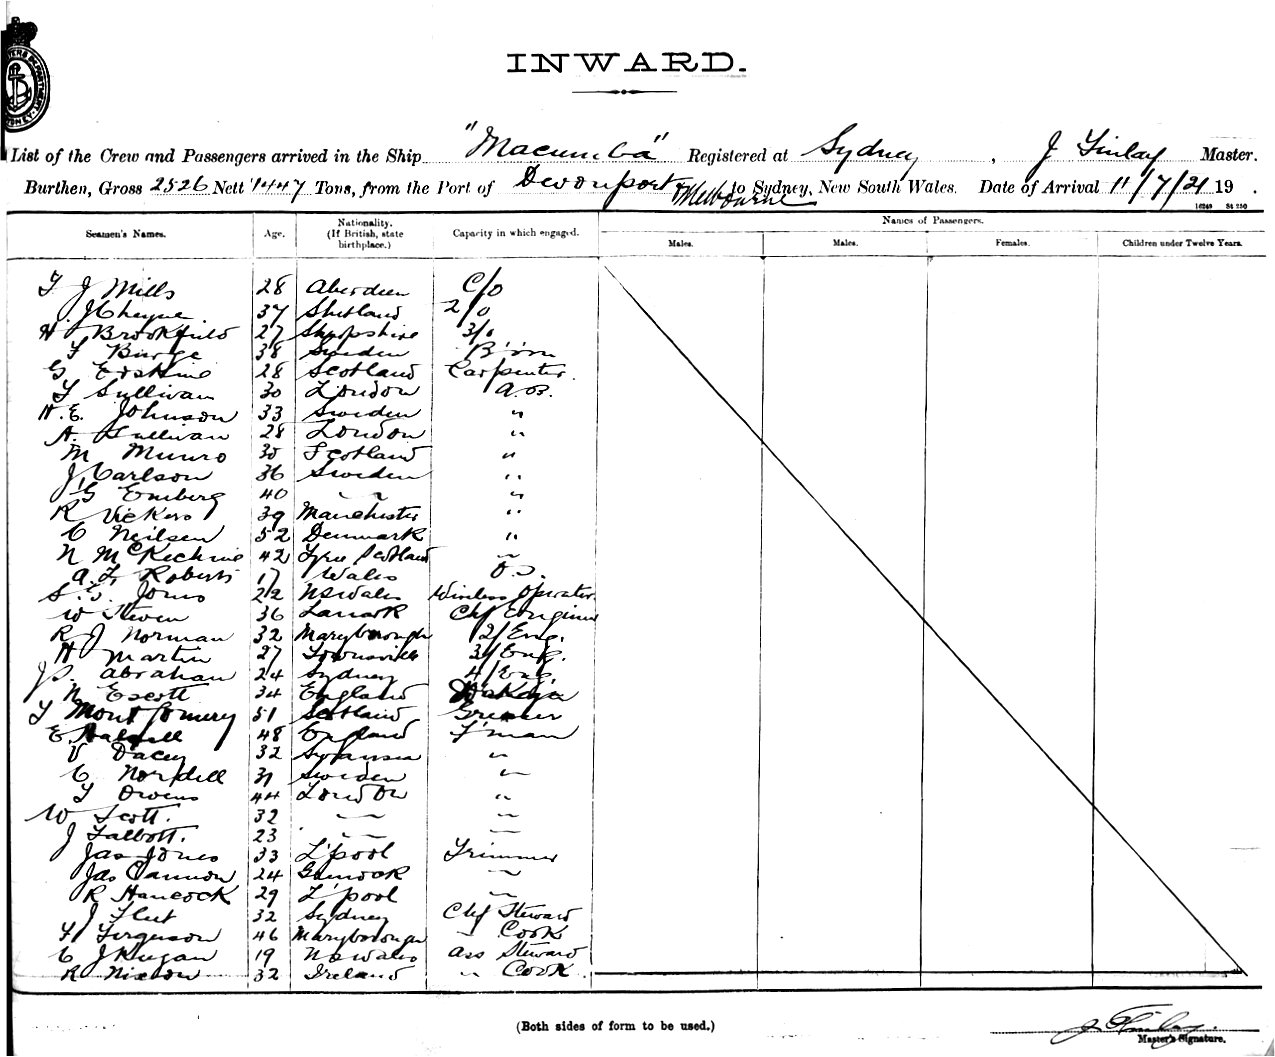 INWARD.
List of the Crew and Passengers arrived in the Ship "Macumba" Registered at Sydney, J Finlay Master.
Burthen, Gross 2526 Nett 1447 Tons, from the Port of Devonport & Melbourne to Sydney, New South Wales. Date of Arrival 11/7/21 19 .
Names of Passengers.
Seamen's Names. Age. Nationality. (If British, state birthplace.) Capacity in which engaged. Males. Males. Females. Children under Twelve Years.
J Mills 28 Aberdeen C/O
J Cheyne 37 Shetland 2/0
H Brookfield 27 Shropshire 3/0
Burge 38 Sweden
G Erskine 28 Scotland Carpenter.
Sullivan 30 London A.B.
H. E. Johnson 33 Sweden "
A. Sullivan 28 London "
M Munro 30 Scotland "
J. Carlson 36 Sweden "
J G Emberg 40 " "
R Vickers 39 Manchester "
C Neilsen 52 Denmark "
N McKechnie 42 Scotland "
A. Roberts 17 Wales O.S.
S. G. Jones 22 NSWales Wireless Operator
W Steven 36 Lanark Chf Engineer
R J Norman 32 Maryborough 2/Eng.
H Martin 27 Townsville 3/Eng.
Abraham 24 Sydney 4/Eng.
N Escott 34 England
Montgomery 51 Scotland Greaser
E 48 England F'man
V Dacey 32 Swansea "
C Nordell 31 Sweden "
Owens 44 London "
W Scott. 32 " "
J Talbott. 23 " "
Jas Jones 33 L'pool Trimmer
Jas Cannon 24 "
R Hancock 29 L'pool "
J 32 Sydney Chf Steward
Ferguson 46 Maryborough " Cook
C J 19 NSWales Ass Steward
R Nixon 32 Ireland " Cook
(Both sides of form to be used.)
J. Finlay.
Master's Signature.